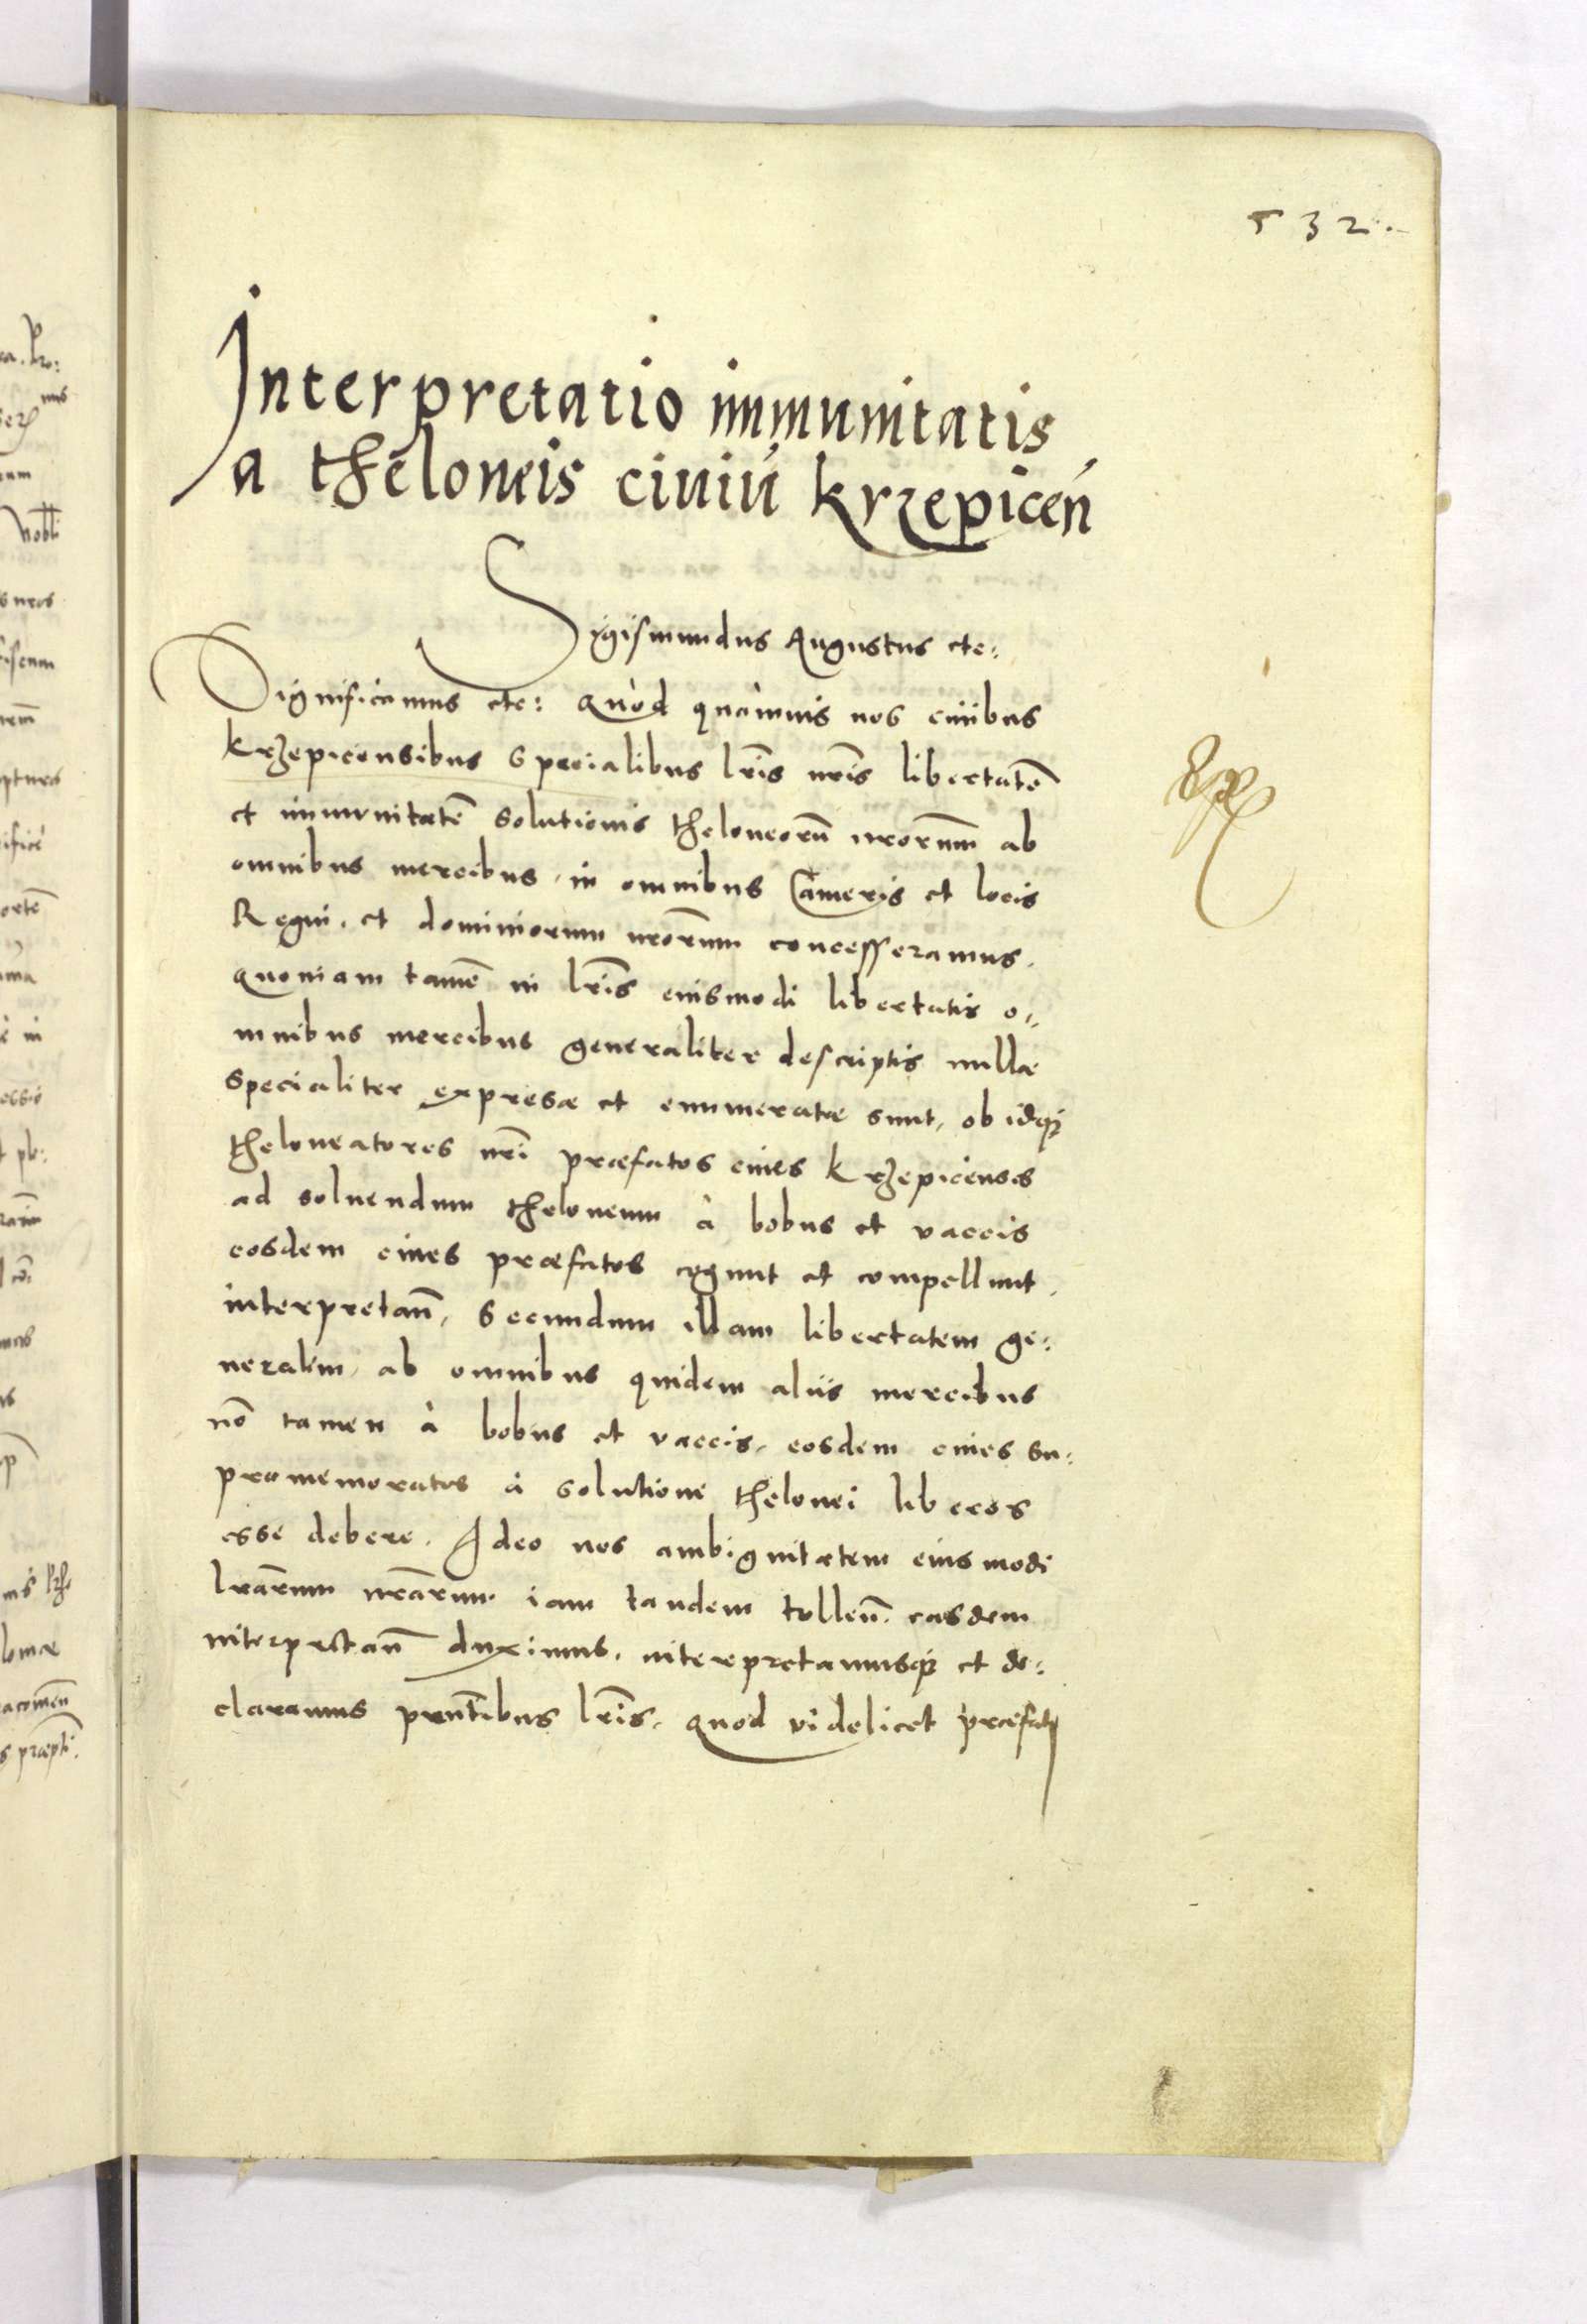 532.
Interpretatio immunitatis
a theloneis ciuiū krzepicen̄
Sigismundus Augustus etc:
Significamus etc: Quòd quàmuis nos ciuibus
Krzepicensibus specialibus lr̄is nr̄is libertatē
et immunitatē solutionis theloneorū nrōrum ab
omnibus mercibus, in omnibus Cameris et locis
Regni, et dominiorum nrōrum concesseramus.
Quoniam tamē in lr̄is eiusmodi libertatis o-
mnibus mercibus generaliter descriptis nullæ
specialiter expresæ et enumeratæ sunt, ob idq̃
theloneatores nr̄i præfatos ciues Krzepicenses
ad soluendum theloneum à bobus et vaccis
eosdem ciues præfatos cogunt et compellunt,
interpretan̄, secundum illam libertatem ge:
neralem, ab omnibus quidem aliis mercibus
nō tamen à bobus et vaccis, eosdem ciues su:
pramemoratos à solutione thelonei liberos
esse debere. Ideo nos ambiguitatem eiusmodi
lrārum nrārum iam tandem tollen̄. easdem
interpretan̄ duximus, interpretamusq̃ et de:
claramus prn̄tibus lr̄is. Quod videlicet præfati